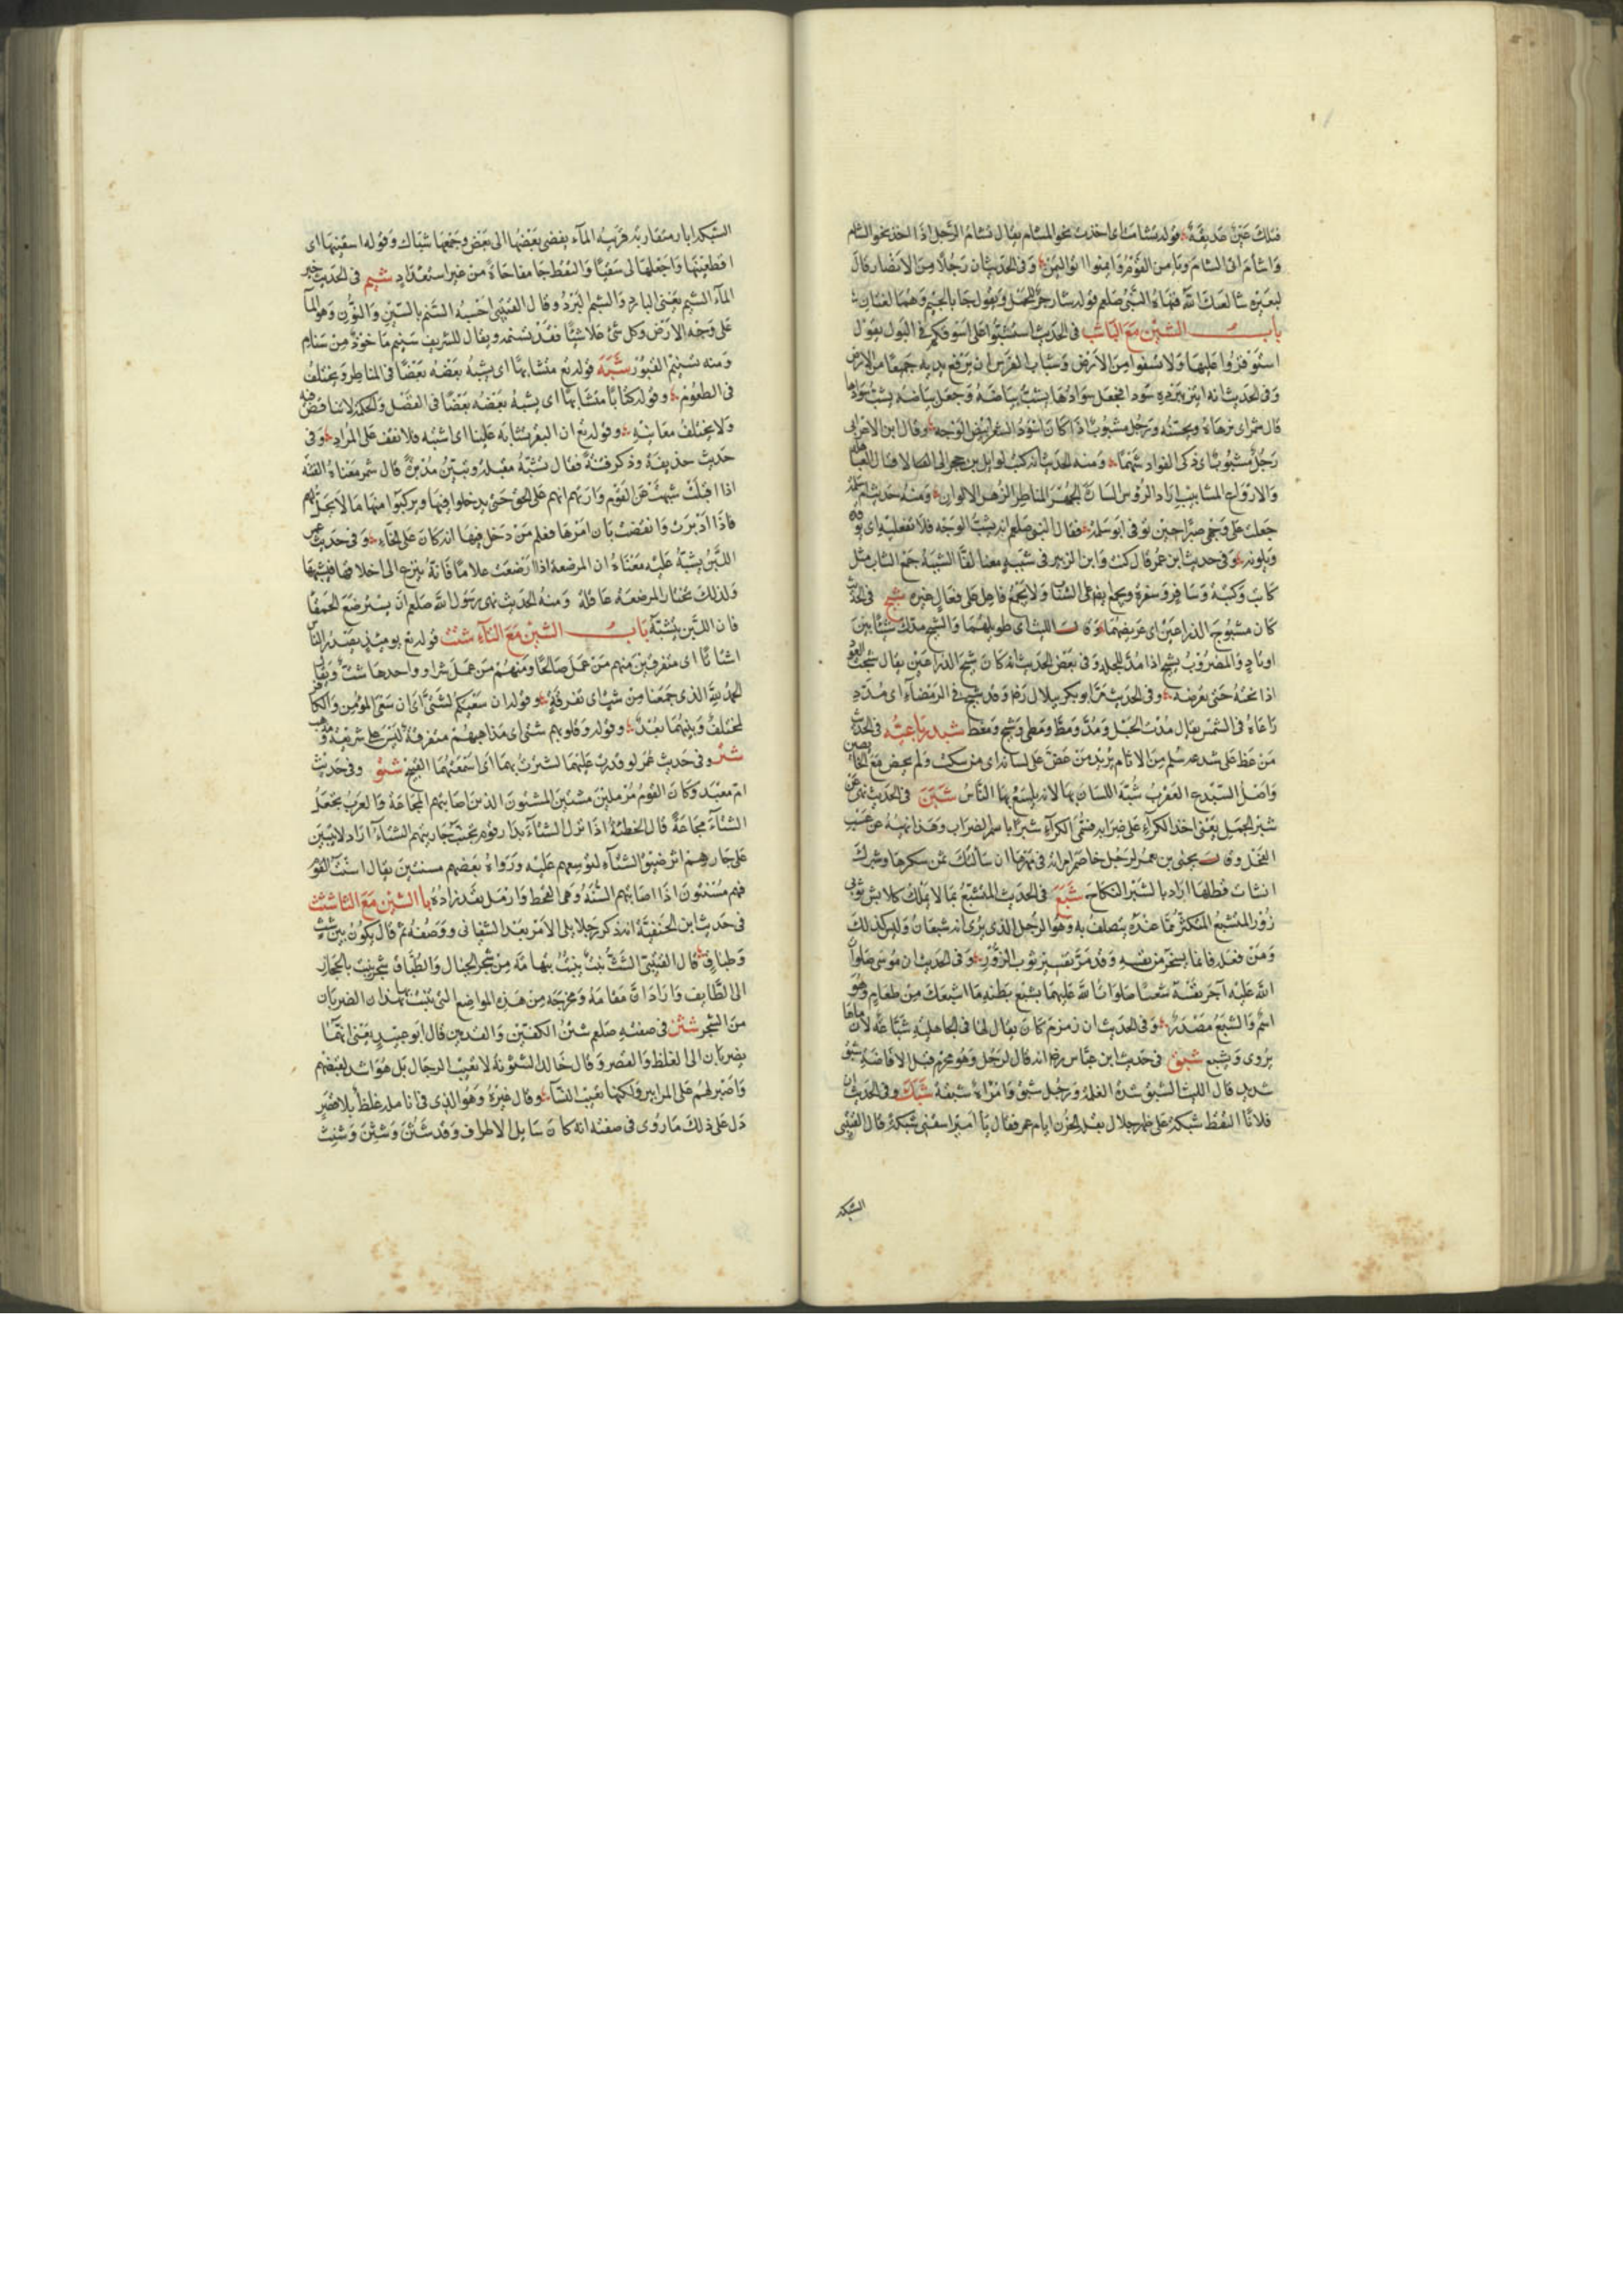 فتلك عين غديقة قوله تشامت اى اخذت نحو الشام يقال تشام الرجل اذا اخذ نحو الشام
واشام اتى الشام ويامن القوم وايمنوا اتوا اليمن وفى الحديث ان رجلا من الانصار قال
لبعيره شا لعنك الله فنهاه النبى صلعم قوله شا زجر للجمل ويقول جا بالجيم وهما لغتان
باب الشين مع الباب فى الحديث استشبوا على اسوقكم فى البول يقول
استوفزوا عليها ولا تسفوا من الارض وشباب الفرس ان يرفع يديه جميعا من الارض
وفى الحديث انه ائتزر ببردة سودا فجعل سوادها يشب بياضه وجعل بياضه يشب سوادها
قال شمر اى تزهاه وتحسنه ورجل مشبوب اذا كان اسود الشعر ابيض الوجه وقال ابن الاعرابى
رجل مشبوب اى ذكى الفواد شهما ومنه الحديث انه كتب لوايل بن حجر الى الاقيال العباهلة
والارواع المشابيب اراد الرؤس السادة الجهر المناظر الزهر الالوان ومنه حديث ام سلمة
جعلت على وجهى صبرا حين توفى ابو سلمة فقال النبى صلعم انه يشب الوجه فلا تفعليه اى يوقده
ويلونه وفى حديث ابن عمر قال كنت وابن الزبير فى شببة معنا لقا الشببة جمع الشاب مثل
كاتب وكتبة وسافر وسفرة ويجمع ايضا على الشباب ولا يجمع فاعل على فعال غيره شبح فى الحديث
كان مشبوح الذراعين اى عريضهما وقال الليث اى طويلهما والشبح مدك شيئا بين
اوتاد والمضروب يشبح اذا مد للجلد وفى بعض الحديث انه كان شبح الذراعين يقال شبحت العود
اذا نحته حتى يعرضه وفى الحديث مر ابو بكر ببلال رضه وقد شبح فى الرمضاء اى مدد
راعاه فى الشمس يقال مدت الحبل ومد ومظ ومطى وشبح ومغط شبدر باعيه فى الحديث
من عض على شبدعه سلم من الاثام يريد من عض على لسانه اى من سكت ولم يخض مع الخايضين
واصل الشبدع العقرب شبه اللسان بها لانه يلسع بها الناس شبر فى الحديث نهى عن
شبر الجمل يعنى اخذ الكراء على ضرابه فسمى الكراء شبرا باسم الضراب وهذا نهيه عن عسب
الفحل وقال يحيى بن يعمر لرجل خاصم امراته فى مهرها ان سالتك ثمن شكرها وشبرك
انشات تطلها اراد بالشبر النكاح شبع فى الحديث المتشبع بما لا يملك كلابس ثوبى
زور المتشبع المتكثر مما عنده يتصلف به وهو الرجل الذى يرى انه شبعان وليس كذلك
ومن فعله فانما يسخر من نفسه وقد مر تفسير ثوب الزور وفى الحديث ان موسى صلوات
الله عليه آجر نفسه شعيبا صلوات الله عليهما بشبع بطنه ما اشبعك من طعام وهو
اسم والشبع مصدر وفى الحديث ان زمزم كان يقال لها فى الجاهلية شباعة لان ماءها
يروى ويشبع شبق فى حديث ابن عباس رضه انه قال لرجل وهو محرم قبل الافاضة شبق
شديد قال الليث الشبق شدة الغلمة ورجل شبق وامراة شبقة شبك وفى الحديث ان
فلانا التقط شبكة على ظهر جلال بقلة الحزن ايام عمر فقال يا امير اسقنى شبكة قال القتبى
الشبكة
الشبكة ابار متقاربة قريبه الماء يفضى بعضها الى بعض وجمعها شباك وقوله اسقنيها اى
اقطعنيها واجعلها لى سقيا والتقطجا مفاجاة من غير استعداد شبم فى الحديث خير
الماء الشبم يعنى البارد والشبم البرد وقال القتيبى احسبه السنم بالسين والنون وهو الماء
على وجه الارض وكل شئ علا شيئا فقد تسنمه ويقال للشريف سنيم ماخوذ من سنام
ومنه تسنيم القبور شبه قوله تع متشابها اى يشبه بعضه بعضا فى المناظر ويختلف
فى الطعوم وقوله كتابا متشابها اى يشبه بعضه بعضا فى الفضل والحكمة لاتناقض فيه
ولا يختلف معانيه وقوله تع ان البقر تشابه علينا اى اشتبه فلا نقف على المراد وفى
حديث حذيفة وذكر فتنة فقال تشبه مقبلة وتبين مدبرة قال شمر معناه الفتنة
اذا اقبلت شبهت على القوم وارتهم انهم على الحق حتى يدخلوا فيها ويركبوا منها ما لا يحل لهم
فاذا ادبرت وانقضت بان امرها فعلم من دخل فيها انه كان على الخطاء وفى حديث عمر
اللبن يشبه عليه معناه ان المرضعة اذا ارضعت غلاما فانه ينزع الى اخلاقها فيشبهها
ولذلك يختار المرضعة عاقلة ومنه الحديث نهى رسول الله صلعم ان يسترضع الحمقا
فان اللبن يشبه باب الشين مع التاء شتت قوله تع يومئذ يصدر الناس
اشتاتا اى متفرقين منهم من عمل صالحا ومنهم من عمل شرا وواحدها شت ويقال
الحمد لله الذى جمعنا من شت اى تفرقة وقوله ان سعيكم لشتى اى ان سعى المؤمن والكافر
لمختلف وبينهما بعد وقوله وقلوبهم شتى اى مذاهبهم متفرقة ليس على شريعة
شتر وفى حديث عمر لو قدرت عليهما لشترت بهما اى اسمعتهما القبيح شتو وفى حديث
ام معبد وكان القوم مرملين مشتين المشتون الذين اصابتهم المجاعة والعرب تجعل
الشتاء مجاعة قال الحطيئة اذا نزل الشتاء بدار قوم تجنب جار بيتهم الشتاء اراد لا يتبين
على جارهم اثر ضيق الشتاء لتوسعهم عليه ورواه بعضهم مسنتين يقال اسنت القوم
فهم مسنتون اذا اصابتهم السنة وهى القحط وارمل نفد زاده باب الشين مع الثا شثث
فى حديث ابن الحنفية انه ذكر رجلا يلى الامر بعد السفيانى ووصفه ثم قال يكون بين شث
وطباق قال القتيبى الشث نبت ينبت بتهامة من شجر الجبال والطباق شجر ينبت بالحجاز
الى الطايف واراد ان مقامه ومخرجه من هذه المواضع التى ينبت بها هذان الضربان
من الشجر شثن فى صفته صلعم شثن الكفين والقدمين قال ابو عبيد يعنى انهما
يضربان الى الغلظ والقصر وقال خالد الشثونة لا تعيب الرجال بل هو اشد لقبضهم
واصبر لهم على المراس ولكنها تعيب النساء وقال غيره وهو الذى فى انامله غلظ بلا قصر
دل على ذلك ما روى فى صفته انه كان سايل الاطراف وقد شثن وشثن وشنث